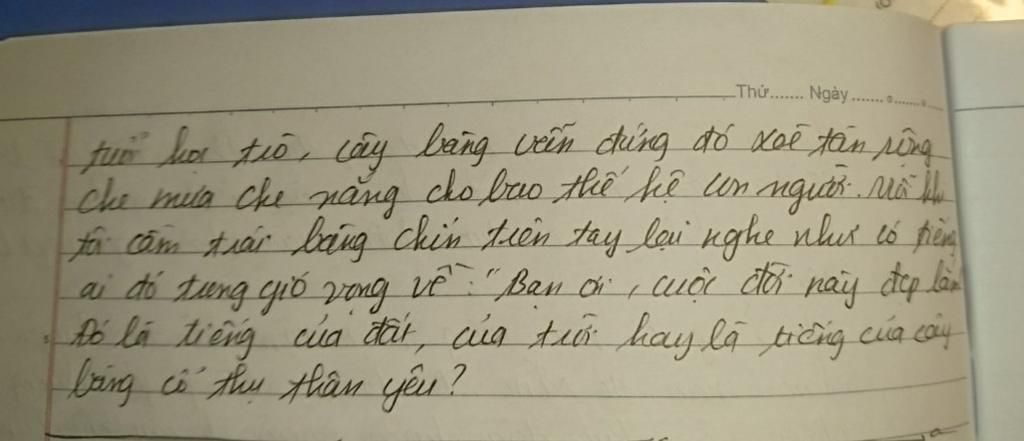 Thứ....... Ngày.......
tuổi học trò, cây bàng vẫn đứng đó xoè tán rộng
che mưa che nắng cho bao thế hệ con người. Mỗi khi
tôi cầm trái bàng chín trên tay lại nghe như có tiếng
ai đó trong gió vọng về: "Bạn ơi, cuộc đời này đẹp lắm
Đó là tiếng của đất, của trời hay là tiếng của cây
bàng cổ thụ thân yêu?